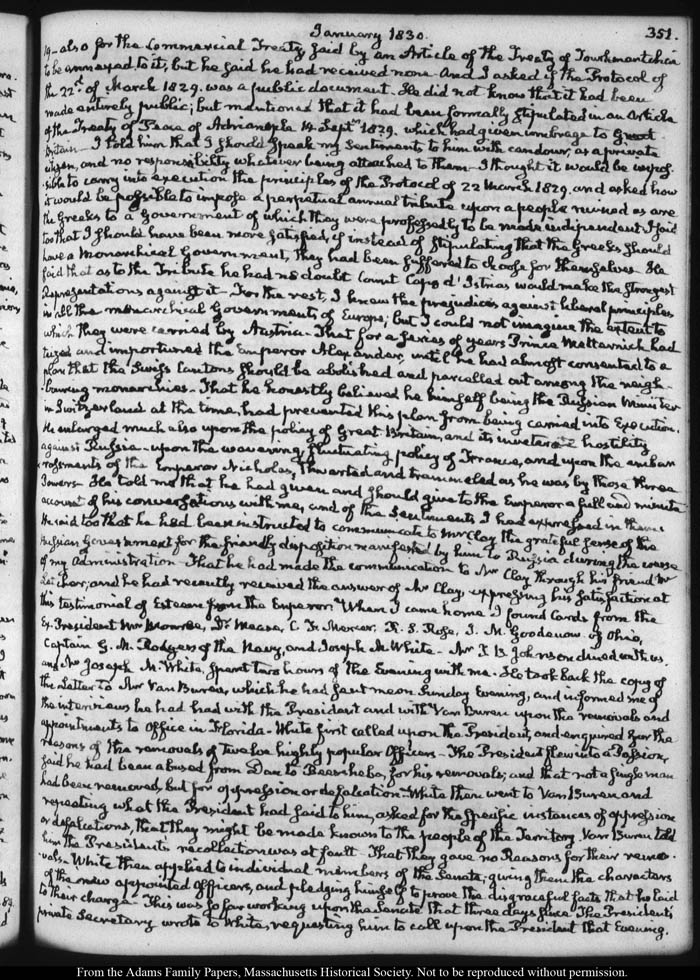 January 1830.
351.
19 – also for the Commercial Treaty said by an Article of the Treaty of Tourkmantchia
to be annexed to it, but he said he had received none. And I asked if the Protocol of
the 22d. of March 1829. was a public document. He did not know that it had been
made entirely public; but mentioned that it had been formally stipulated in an Article
of the Treaty of Peace of Adrianople 14. Septr. 1829. which had given umbrage to Great
Britain – I told him that I should speak my sentiments to him with candour, as a private
citizen, and no responsibility whatever being attached to them – I thought it would be impos-
sible to carry into execution the principles of the Protocol of 22 March 1829. and asked how
it would be possible to impose a perpetual annual tribute upon a people ruined as are
the Greeks to a Government of which they were professedly to be made independent. I said
too that I should have been more satisfied, if instead of stipulating that the Greeks should
have a Monarchical Government, they had been suffered to choose for themselves. He
said that as to the Tribute he had no doubt Count Capo d'Istrias would make the strongest
Representations against it – For the rest, I knew the prejudices against liberal principles
in all the monarchical Governments of Europe; but I could not imagine the extent to
which they were carried by Austria – That for a series of years Prince Metternich had
teized and importuned the Emperor Alexander, until he had almost consented to a
plan that the Swiss Cantons should be abolished and parcelled out among the neigh-
bouring monarchies – That he honestly believed he himself being the Russian Minister
in Switzerland at the time, had prevented this plan from being carried into Execution.
He enlarged much also upon the policy of Great Britain, and its inveterate hostility
against Russia – upon the wavering, fluctuating policy of France, and upon the embar-
rassments of the Emperor Nicholas, thwarted and trammeled as he was by those three
Powers – He told me that he had given and should give to the Emperor a full and minute
account of his conversations with me, and of the sentiments I had expressed in them.
He said too that he had been instructed to communicate to Mr Clay the grateful sense of the
Russian Government for the friendly disposition manifested by him to Russia during the course
of my Administration – That he had made the communication to Mr Clay through his friend Mr
and he had recently received the answer of Mr Clay, expressing his satisfaction at
this testimonial of Esteem from the Emperor. When I came home I found Cards from the
Ex-President Mr Monroe, Dr. Mease, C. F. Mercer, R. S. Rose, I. M. Goodenow of Ohio,
Captain G. M. Rodgers of the Navy, and Joseph M. White – Mr J. B. Johnson dined with us,
and Mr Joseph M. White, spent two hours of the Evening with me – He took back the copy of
the Letter to Mr Van Buren, which he had sent me on Sunday Evening, and informed me of
the interviews he had had with the President and with Van Buren upon the removals and
appointments to Office in Florida – White first called upon the President, and enquired for the
reasons of the removals of twelve highly popular Officers – The President flew into a Passion,
said he had been abused from Dan to Beersheba, for his removals; and that not a single man
had been removed, but for oppression or defalcation – White then went to Van Buren and
repeating what the President had said to him, asked for the specific instances of oppression
or defalcations, that they might be made known to the people of the Territory. Van Buren told
him the President's recollection was at fault – That they gave no Reasons for their remo-
vals – White then applied to individual members of the Senate; giving them the characters
of the new appointed Officers, and pledging himself to prove the disgraceful facts that he laid
to their charge – This was so far working upon the Senate that three days since The President's
private Secretary wrote to White, requesting him to call upon the President that Evening.
From the Adams Family Papers, Massachusetts Historical Society. Not to be reproduced without permission.